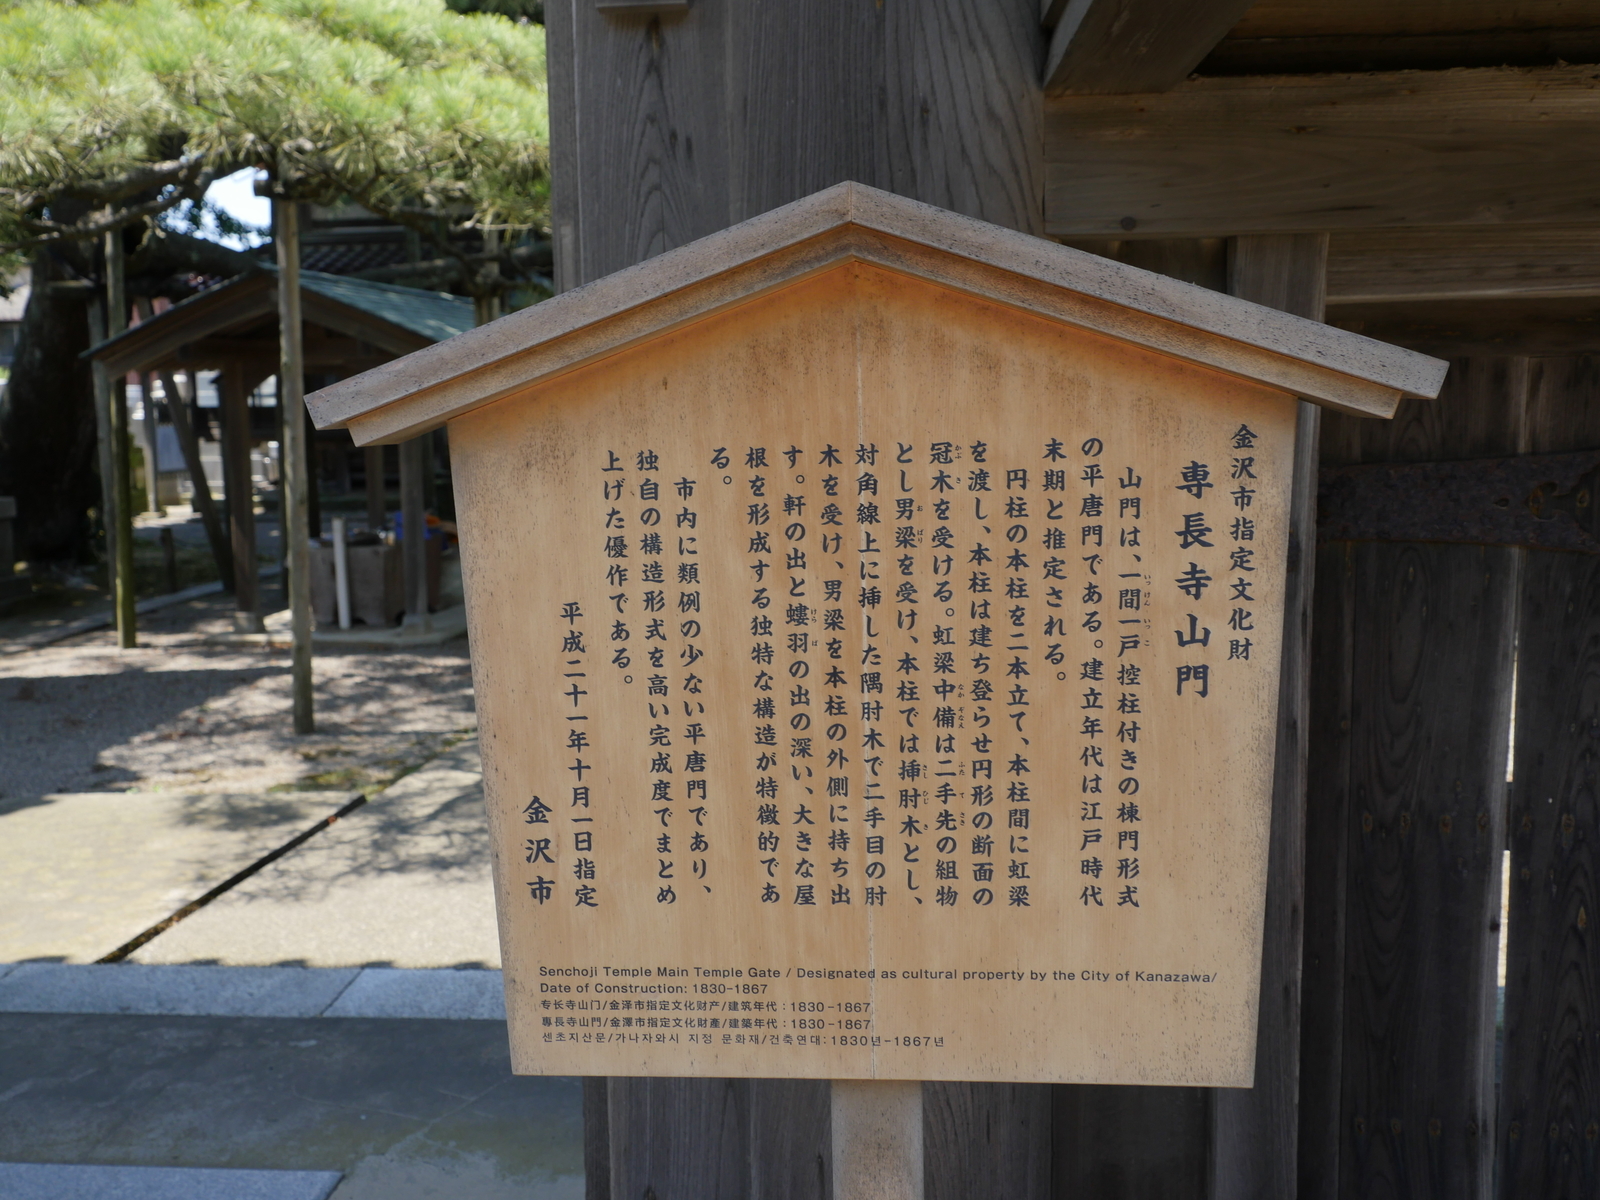 金沢市指定文化財
専長寺山門
山門は、一間一戸控柱付きの棟門形式
の平唐門である。建立年代は江戸時代
末期と推定される。
円柱の本柱を二本立て、本柱間に虹梁
を渡し、本柱は建ち登らせ円形の断面の
冠木を受ける。虹梁中備は二手先の組物
とし男梁を受け、本柱では挿肘木とし、
対角線上に挿した隅肘木で二手目の肘
木を受け、男梁を本柱の外側に持ち出
す。軒の出と螻羽の出の深い、大きな屋
根を形成する独特な構造が特徴的であ
る。
市内に類例の少ない平唐門であり、
独自の構造形式を高い完成度でまとめ
上げた優作である。
平成二十一年十月一日指定
金沢市
Senchoji Temple Main Temple Gate / Designated as cultural property by the City of Kanazawa/
Date of Construction: 1830-1867
专长寺山门/金泽市指定文化财产/建筑年代：1830-1867
專長寺山門/金澤市指定文化財產/建築年代：1830-1867
센초지산문/가나자와시 지정 문화재/건축연대:1830년-1867년